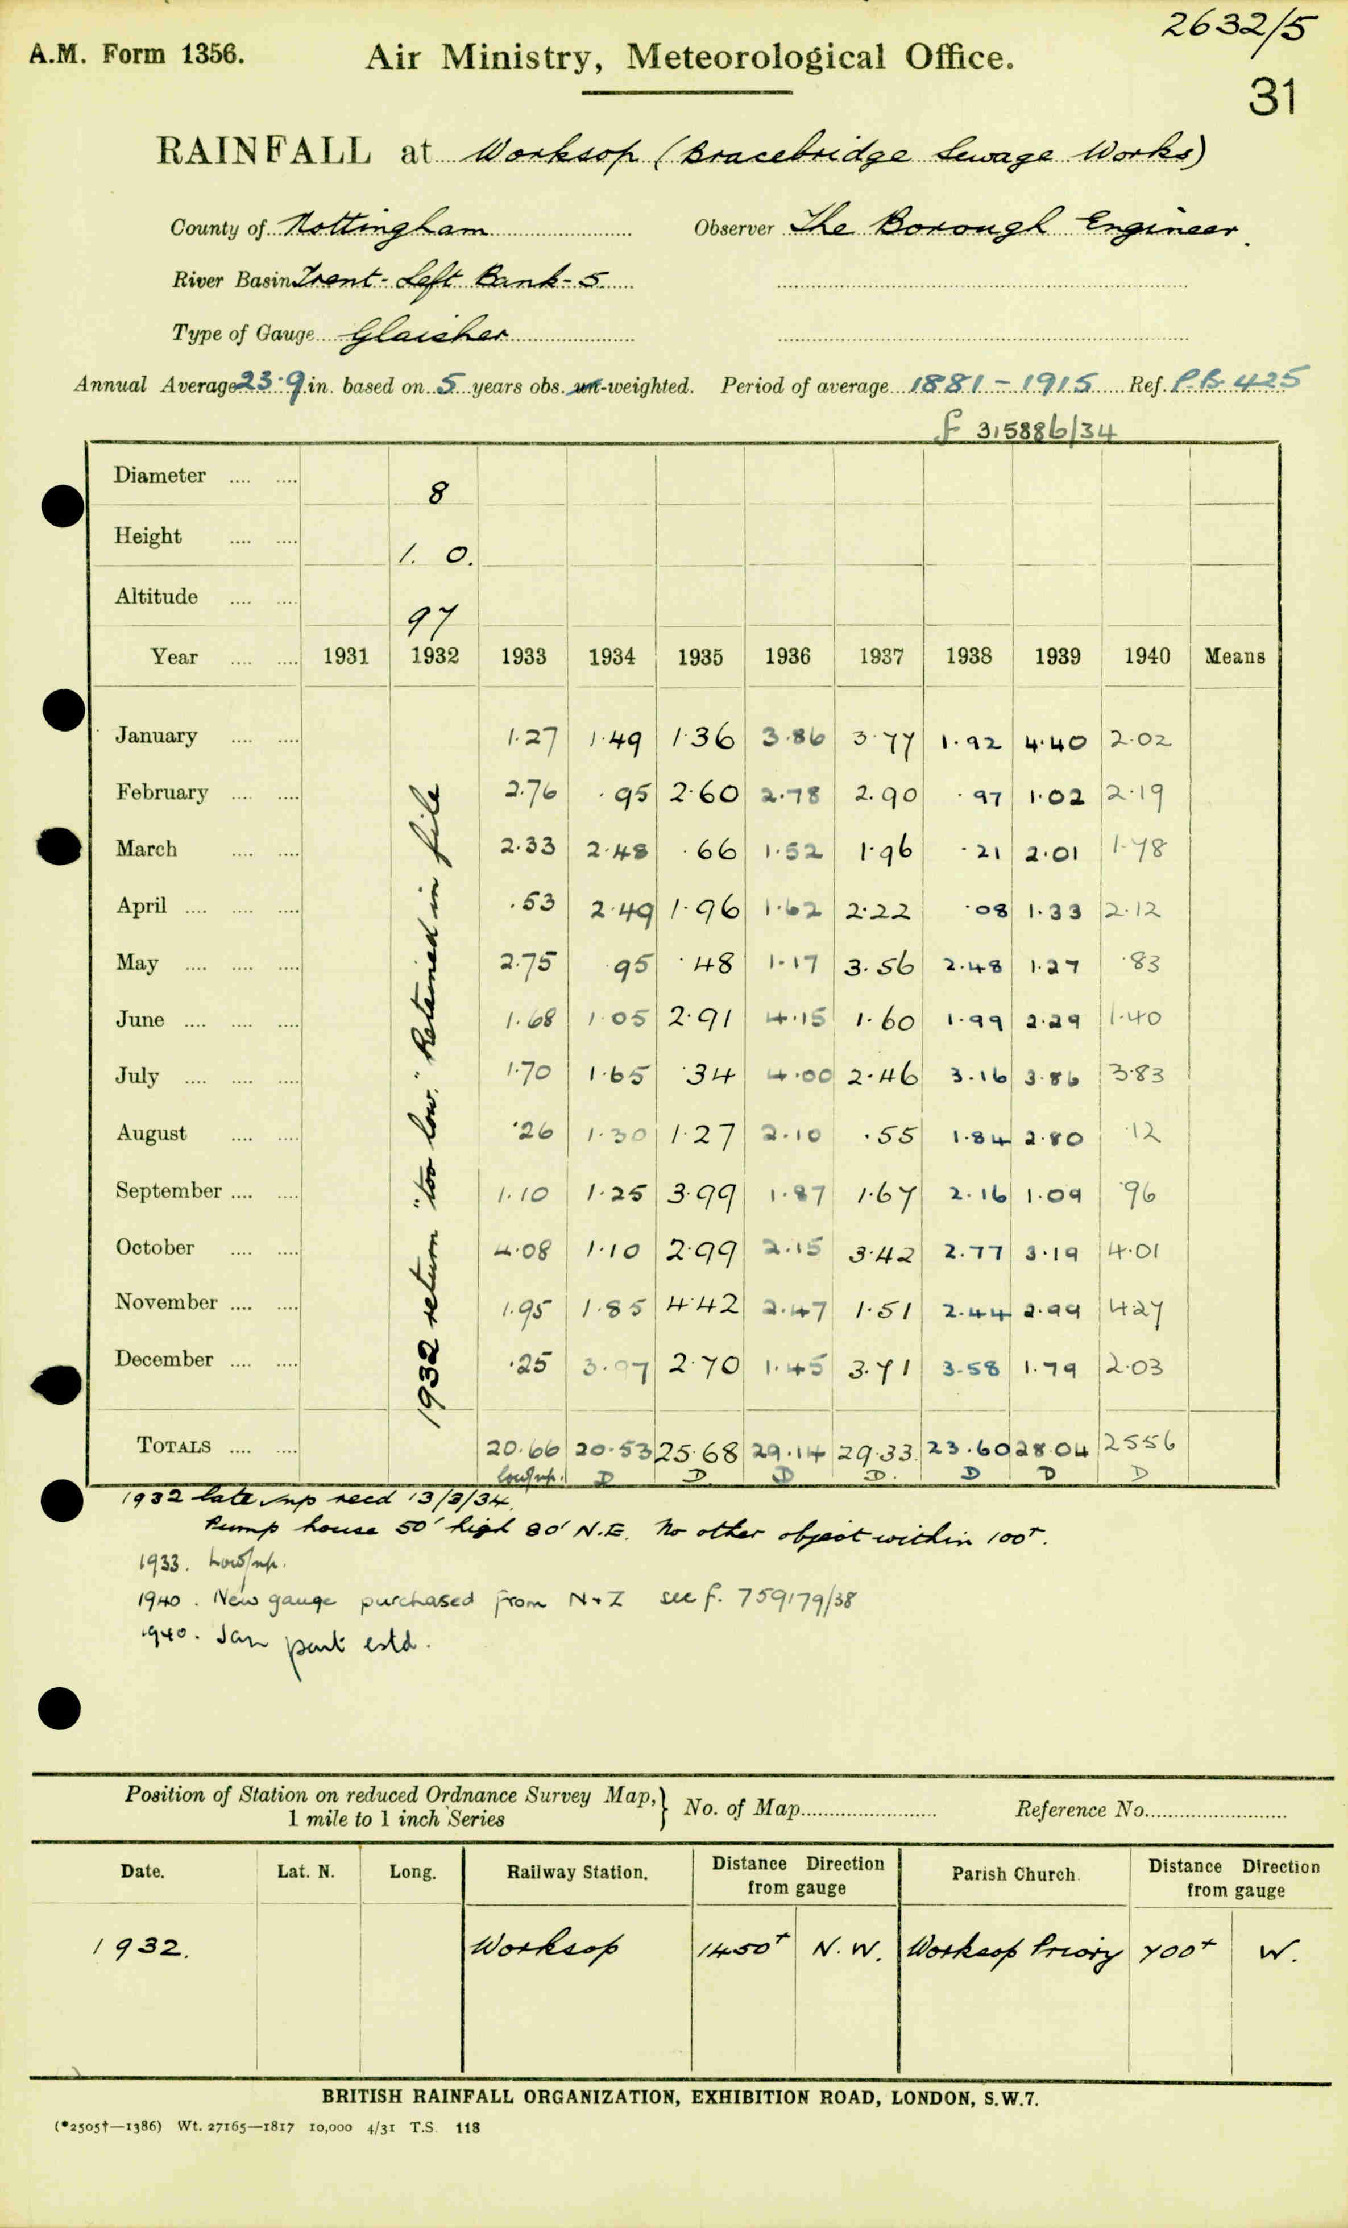 2632/5
A.M. Form 1356. Air Ministry, Meteorological Office.
31
RAINFALL at Worksop (Bracebridge Sewage Works)
County of Nottingham Observer The Borough Engineer.
River Basin Trent - Left Bank - 5
Type of Gauge Glaisher
Annual Average 23.9 in. based on 5 years obs. un-weighted. Period of average 1881 - 1915 Ref. P.B. 425
f 315886/34
Diameter .... .... 8
Height .... .... 1. 0.
Altitude .... .... 97
Year .... .... 1931 1932 1933 1934 1935 1936 1937 1938 1939 1940 Means
January .... .... 1.27 1.49 1.36 3.86 3.77 1.92 4.40 2.02
February .... .... 2.76 .95 2.60 2.78 2.90 .97 1.02 2.19
March .... .... 2.33 2.48 .66 1.52 1.96 .21 2.01 1.78
April .... .... .... .53 2.49 1.96 1.62 2.22 .08 1.33 2.12
May .... .... .... 2.75 .95 .48 1.17 3.56 2.48 1.27 .83
June .... .... .... 1.68 1.05 2.91 4.15 1.60 1.99 2.29 1.40
July .... .... .... 1.70 1.65 .34 4.00 2.46 3.16 3.86 3.83
August .... .... .26 1.30 1.27 2.10 .55 1.84 2.80 .12
September .... .... 1.10 1.25 3.99 1.87 1.67 2.16 1.09 .96
October .... .... 4.08 1.10 2.99 2.15 3.42 2.77 3.19 4.01
November .... .... 1.95 1.85 4.42 2.47 1.51 2.44 2.99 4.27
December .... .... .25 3.97 2.70 1.45 3.71 3.58 1.79 2.03
1932 return "too low." Retained in file
TOTALS .... .... 20.66 20.53 25.68 29.14 29.33 23.60 28.04 25.56
low/np. D D D D. D D D
1932 late np recd 13/3/34.
Pump house 50' high 80' N.E. No other object within 100'.
1933. Low/np.
1940. New gauge purchased from N+Z see f. 759179/38
1940. Jan part estd.
Position of Station on reduced Ordnance Survey Map, 1 mile to 1 inch Series } No. of Map Reference No.
Date. Lat. N. Long. Railway Station. Distance Direction from gauge Parish Church. Distance Direction from gauge
1932. Worksop 1450+ N.W. Worksop Priory 700+ W.
BRITISH RAINFALL ORGANIZATION, EXHIBITION ROAD, LONDON, S.W.7.
(*2505†—1386) Wt. 27165—1817 10,000 4/31 T.S. 118